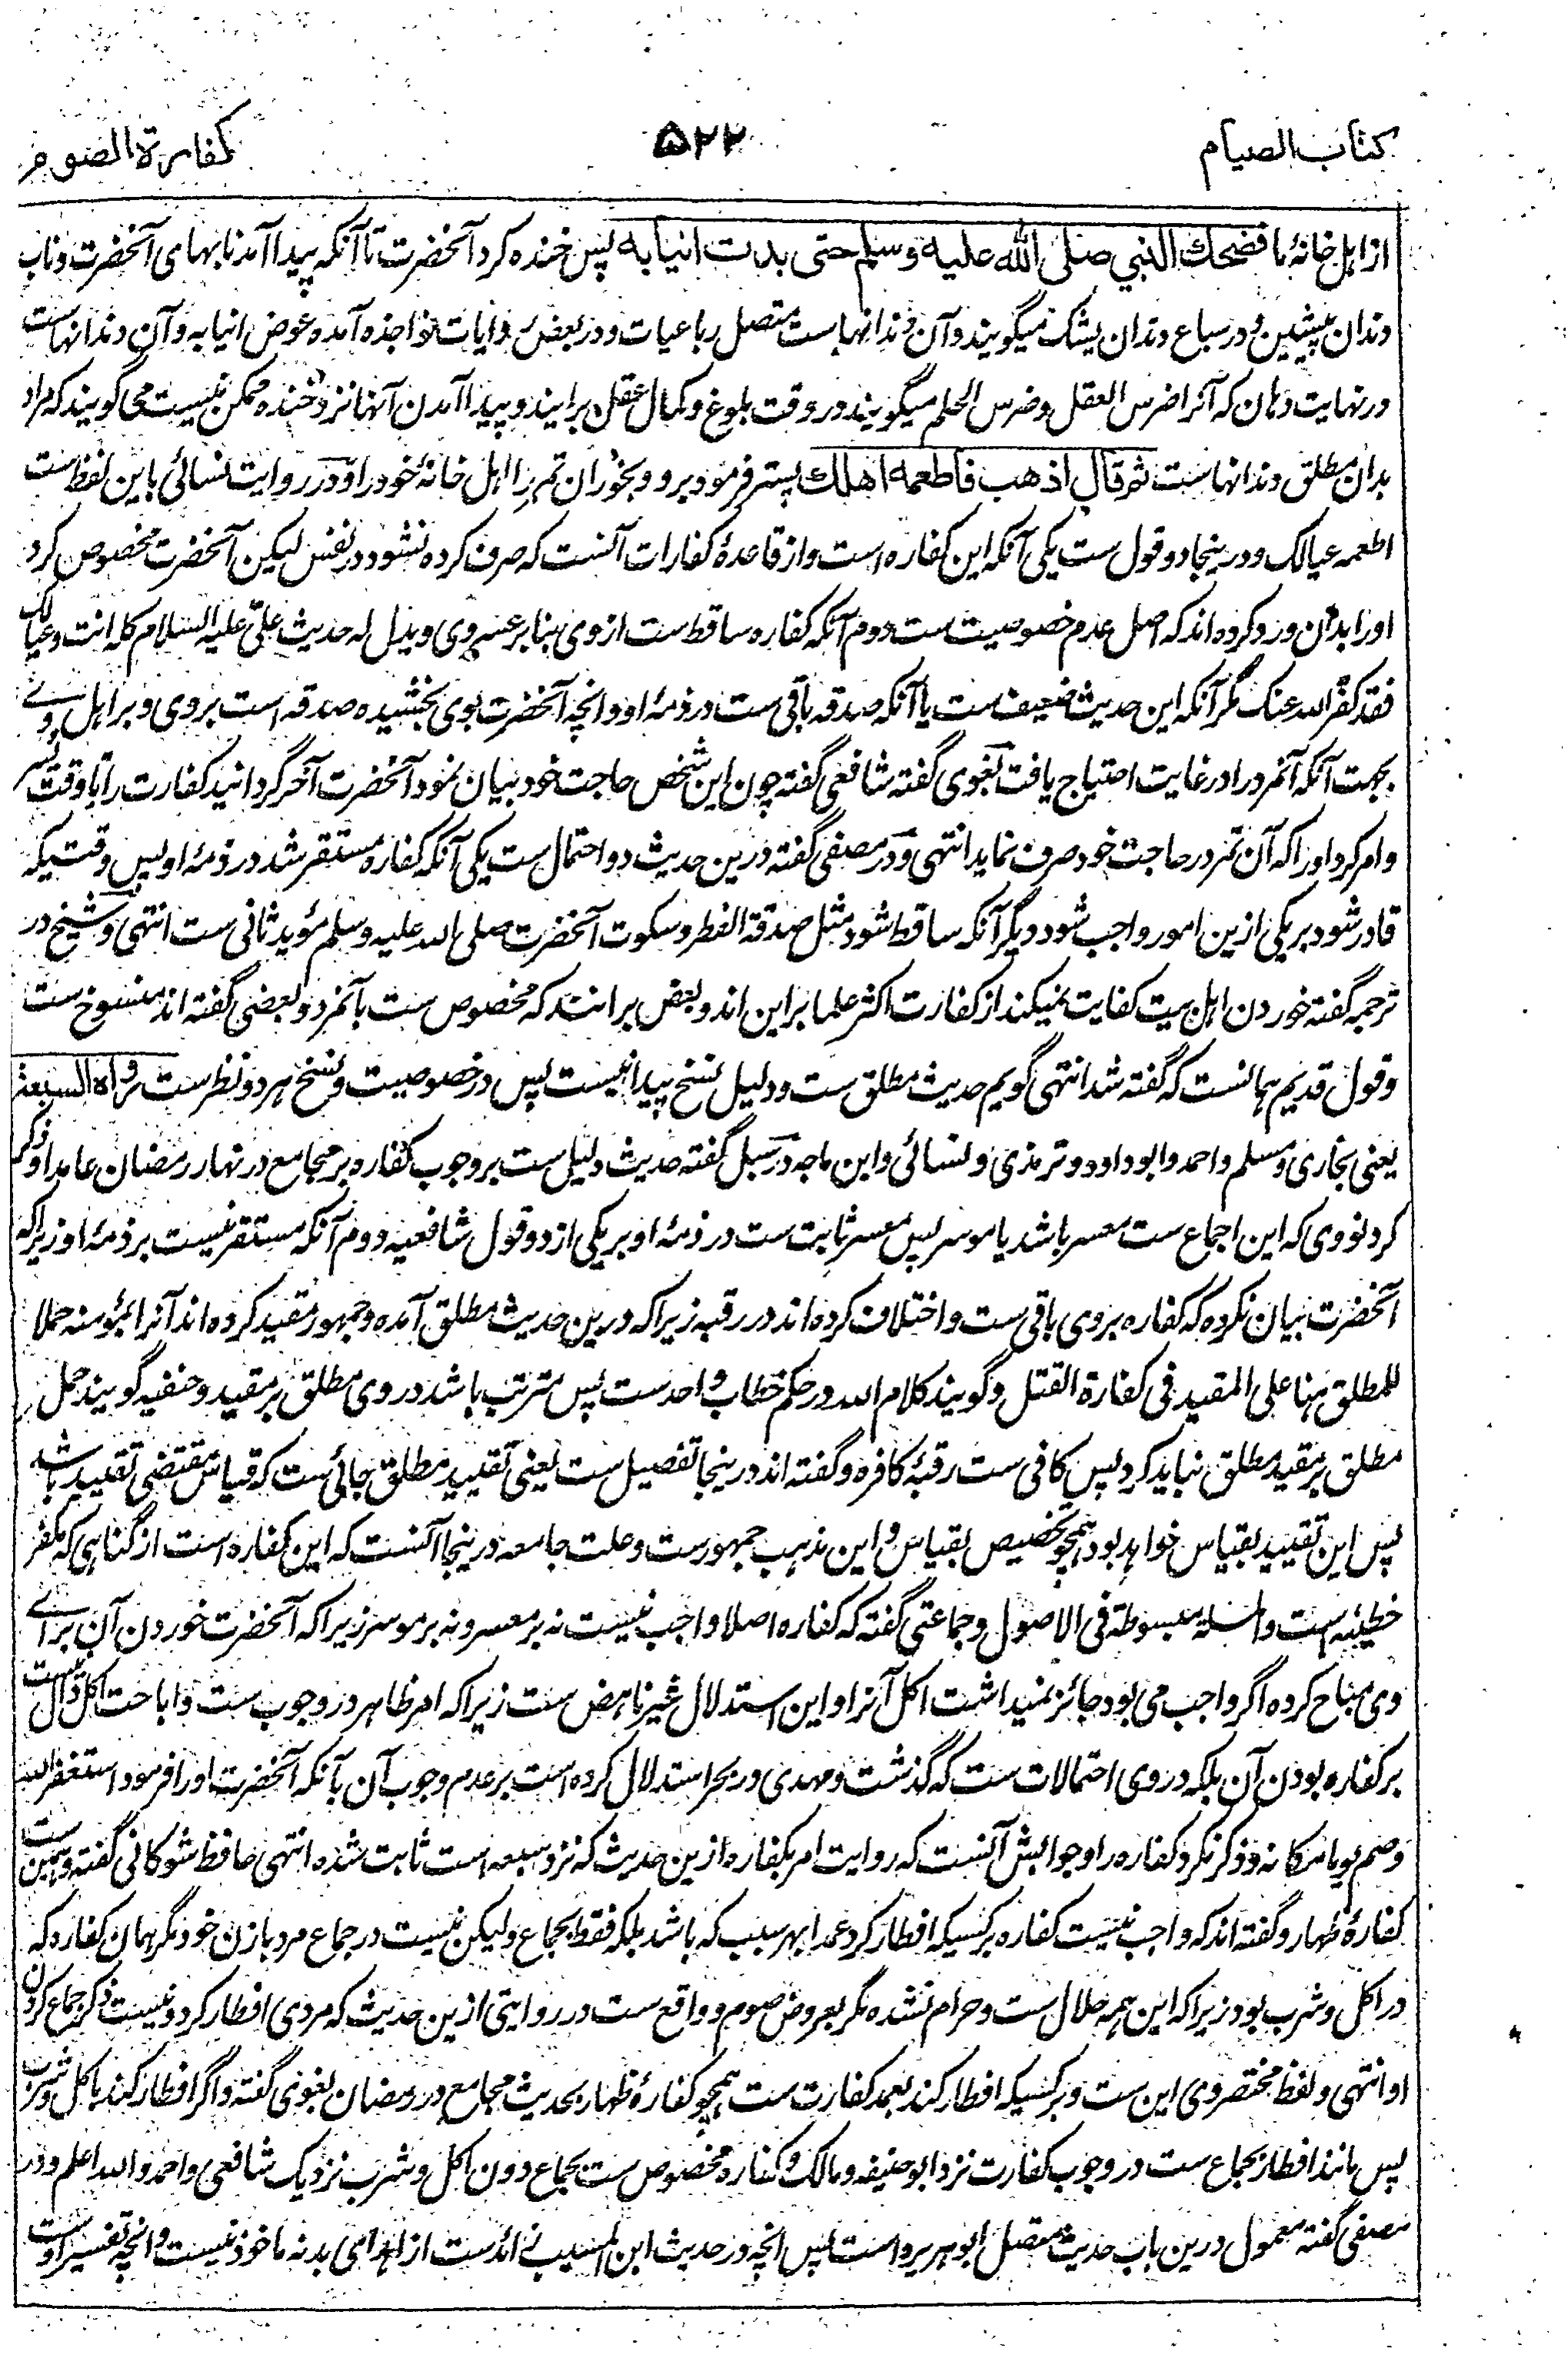 کتاب الصیام ۵۲۲ کفارة الصوم
از اہل خانۂ ما فضحك النبي صلى الله عليه وسلم حتى بدت انيابه پس خندہ کرد آنحضرت تا آنکہ پیدا آمد نابہای آنحضرت و ناب
دندان پیشین و در سباع دندان یشک میگویند و آن دندانہاست متصل رباعیات و در بعض روایات نواجذه آمده عوض انیابه و آن دندانہاست
در نہایت دہان کہ آنرا ضرس العقل و ضرس الحلم میگویند در وقت بلوغ و کمال عقل برایند و پیدا آمدن آنہا نزد خندہ ممکن نیست می گویند کہ مراد
بدان مطلق دندانہاست ثم قال اذهب فاطعمه اهلك پستر فرمود برو و بخوران تمر را اہل خانۂ خود را و در روایت نسائی باین لفظ ست
اطعمه عیالک و در ینجا دو قول ست یکی آنکہ این کفارہ است و از قاعدۂ کفارات آنست کہ صرف کردہ نشود در نفس لیکن آنحضرت مخصوص کرد
اورا بدان ورد کردہ اند کہ اصل عدم خصوصیت ست دوم آنکہ کفارہ ساقط ست از وی بنا بر عسر وی ویدل له حدیث علی علیہ السلام کله انت وعیالک
فقد کفر الله عنک مگر آنکہ این حدیث ضعیف ست یا آنکہ صدقہ باقی ست در ذمۂ او و انچہ آنحضرت بوی بخشیدہ صدقہ است بر وی و بر اہل وے
بجہت آنکہ آنمرد را در غایت احتیاج یافت بغوی گفتہ شافعی گفتہ چون این شخص حاجت خود بیان نمود آنحضرت آخر گردانید کفارت را تا وقت یسر
و امر کرد اورا کہ آن تمر در حاجت خود صرف نماید انتہی و در مصفی گفتہ درین حدیث دو احتمال ست یکی آنکہ کفارہ مستقر شد در ذمۂ او پس وقتیکہ
قادر شود بر یکی ازین امور واجب شود دیگر آنکہ ساقط شود مثل صدقۃ الفطر و سکوت آنحضرت صلی اللہ علیہ وسلم مؤید ثانی ست انتہی و شیخ در
ترجمہ گفتہ خوردن اہل بیت کفایت نمیکند از کفارت اکثر علما برین اند و بعض برانند کہ مخصوص ست بآنمرد و بعضی گفتہ اند منسوخ ست
و قول قدیم ہمانست کہ گفتہ شد انتہی گویم حدیث مطلق ست و دلیل نسخ پیدا نیست پس در خصوصیت و نسخ ہر دو نظر ست رواه السبعة
یعنی بخاری و مسلم و احمد و ابو داود و ترمذی و نسائی و ابن ماجہ در سبل گفتہ حدیث دلیل ست بر وجوب کفارہ بر مجامع در نہار رمضان عامدا و ذکر
کرد نووی کہ این اجماع ست معسر باشد یا موسر پس معسر ثابت ست در ذمۂ او بر یکی از دو قول شافعیہ دوم آنکہ مستقر نیست بر ذمۂ او زیرا کہ
آنحضرت بیان نکردہ کہ کفارہ بروی باقی ست و اختلاف کردہ اند در رقبہ زیرا کہ درین حدیث مطلق آمدہ و جمہور مقید کردہ اند آنرا بمؤمنہ حملا
للمطلق ہنا علی المقید فی کفارة القتل و گویند کلام اللہ در حکم خطاب واحد ست پس مترتب باشد در وی مطلق بر مقید و حنفیہ گویند حمل
مطلق بر مقید مطلق نباید کرد پس کافی ست رقبۂ کافرہ و گفتہ اند در ینجا تفصیل ست یعنی تقیید مطلق جائی ست کہ قیاس مقتضی تقیید باشد
پس این تقیید بقیاس خواہد بود ہمچو تخصیص بقیاس و این مذہب جمہور ست و علت جامعہ در ینجا آنست کہ این کفارہ است از گناہی کہ مکفر
خطیئہ است والمسئلة مبسوطة فی الاصول و جماعتی گفتہ کہ کفارہ اصلا واجب نیست نہ بر معسر و نہ بر موسر زیرا کہ آنحضرت خوردن آن برائے
وی مباح کردہ اگر واجب می بود جائز نمیداشت اکل آنرا و این استدلال غیر ناہض ست زیرا کہ امر ظاہر در وجوب ست و اباحت اکل دال نیست
بر کفارہ بودن آن بلکہ در وی احتمالات ست کہ گذشت و مہدی در بحر استدلال کردہ است بر عدم وجوب آن بآنکہ آنحضرت اورا فرمود استغفر اللہ
وصم یوما مکانه و ذکر نکرد کفارہ را و جوابش آنست کہ روایت امر بکفارہ ازین حدیث کہ نزد سبعہ است ثابت شدہ انتہی حافظ شوکانی گفتہ و ہمین ست
کفارۂ ظہار و گفتہ اند کہ واجب نیست کفارہ بر کسیکہ افطار کرد عمدا بہر سبب کہ باشد بلکہ فقط بجماع و لیکن نیست در جماع مرد بازن خود مگر ہمان کفارہ کہ
در اکل و شرب بود زیرا کہ این ہمہ حلال ست و حرام نشدہ مگر بعروض صوم و واقع ست در روایتی ازین حدیث کہ مردی افطار کرد و نیست ذکر جماع کردن
او انتہی و لفظ مختصر وی این ست و بر کسیکہ افطار کند بعمد کفارت ست ہمچو کفارۂ ظہار بحدیث مجامع در رمضان بغوی گفتہ و اگر افطار کند باکل و شرب
پس مانند افطار بجماع ست در وجوب کفارت نزد ابو حنیفہ و مالک و کفارہ مخصوص ست بجماع دون اکل و شرب نزدیک شافعی و احمد واللہ اعلم و در
مصفی گفتہ معمول درین باب حدیث متصل ابو ہریرہ است پس انچہ در حدیث ابن المسیب زائدست از اہدای بدنہ ماخوذ نیست و انچہ تفسیر اوست